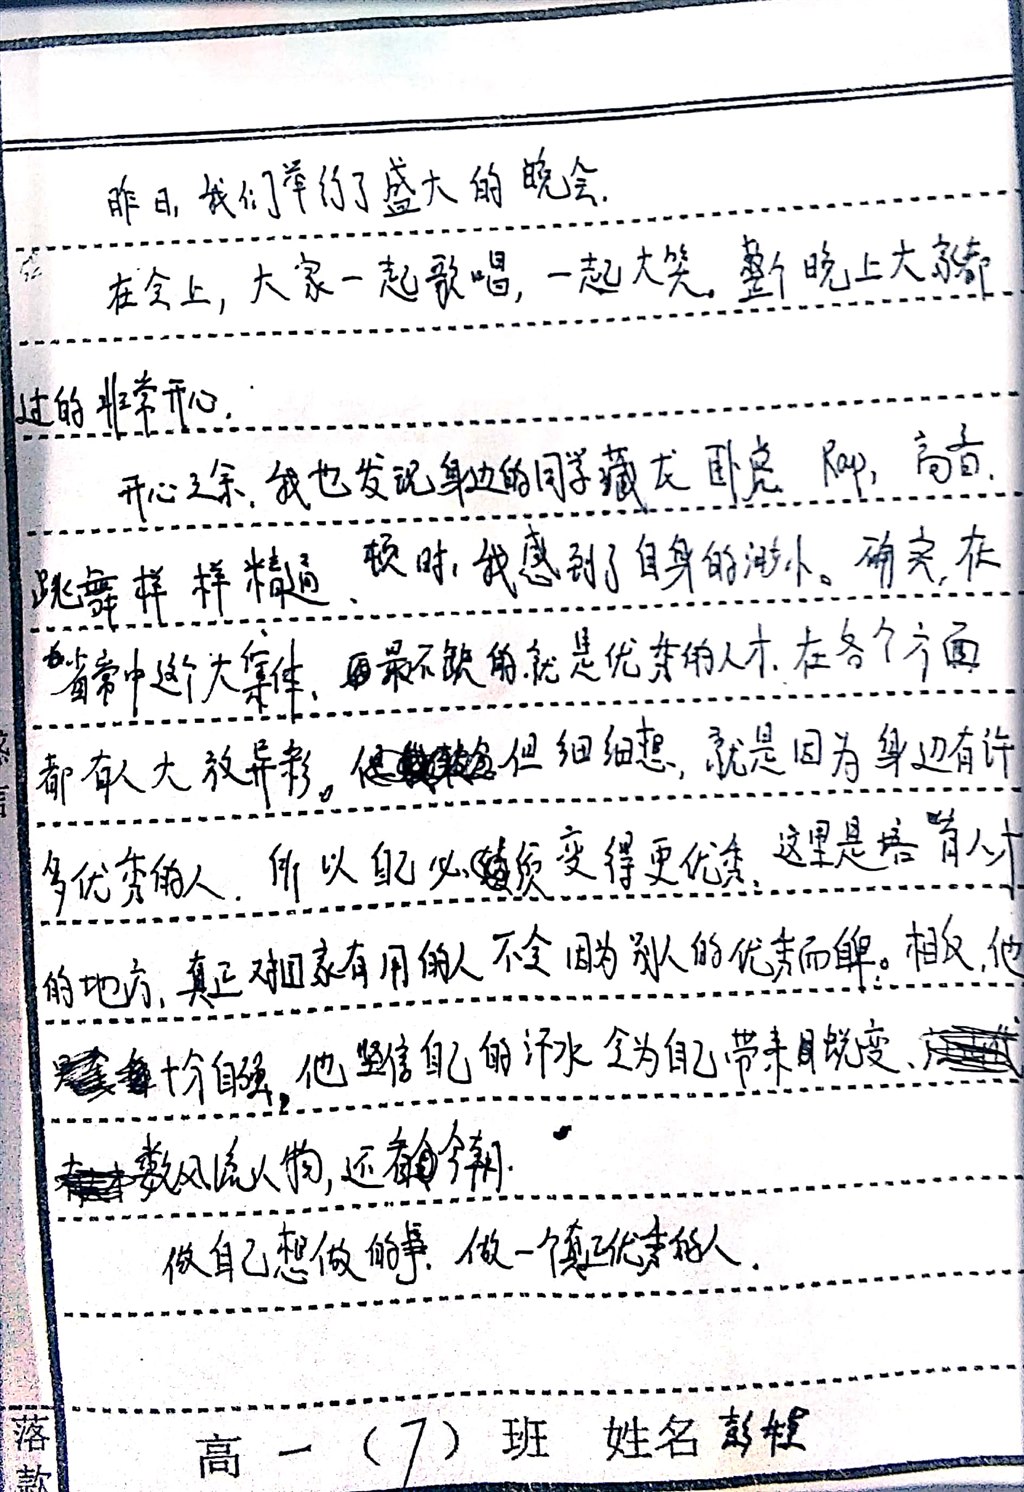 昨日,我们举行了盛大的晚会.
在会上,大家一起歌唱,一起大笑。整个晚上大家都
过的非常开心.
开心之余,我也发现身边的同学藏龙卧虎 Rap, 高音、
跳舞样样精通、顿时,我感到了自身的渺小。确实,在
省常中这个大集体、最不缺的就是优秀的人才.在各个方面
都有人大放异彩。但细细想,就是因为身边有许
多优秀的人.所以自己必须变得更优秀、这里是培育人才
的地方,真正对国家有用的人不会因为别人的优秀而自卑。相反,他
十分自强,他坚信自己的汗水会为自己带来蜕变、
数风流人物,还看今朝.
做自己想做的事、做一个真正优秀的人.
落款
高一(7)班 姓名 彭